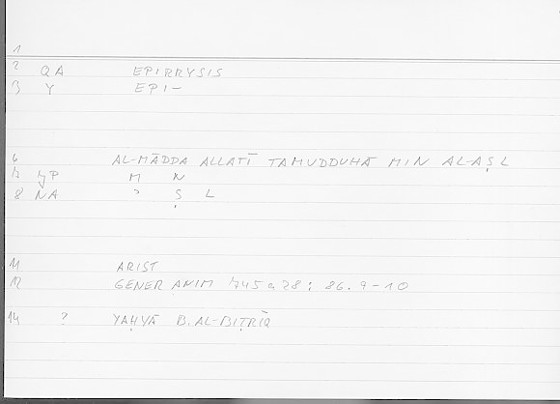 1
2 QA EPIRRYSIS
3 Y EPI-
6 AL-MĀDDA ALLATĪ TAMUDDUHĀ MIN AL-AṢL
7 YP M N
8 NA ʾ Ṣ L
11 ARIST
12 GENER ANIM 745a28: 86.9-10
14 ? YAḤYĀ B. AL-BIṬRĪQ